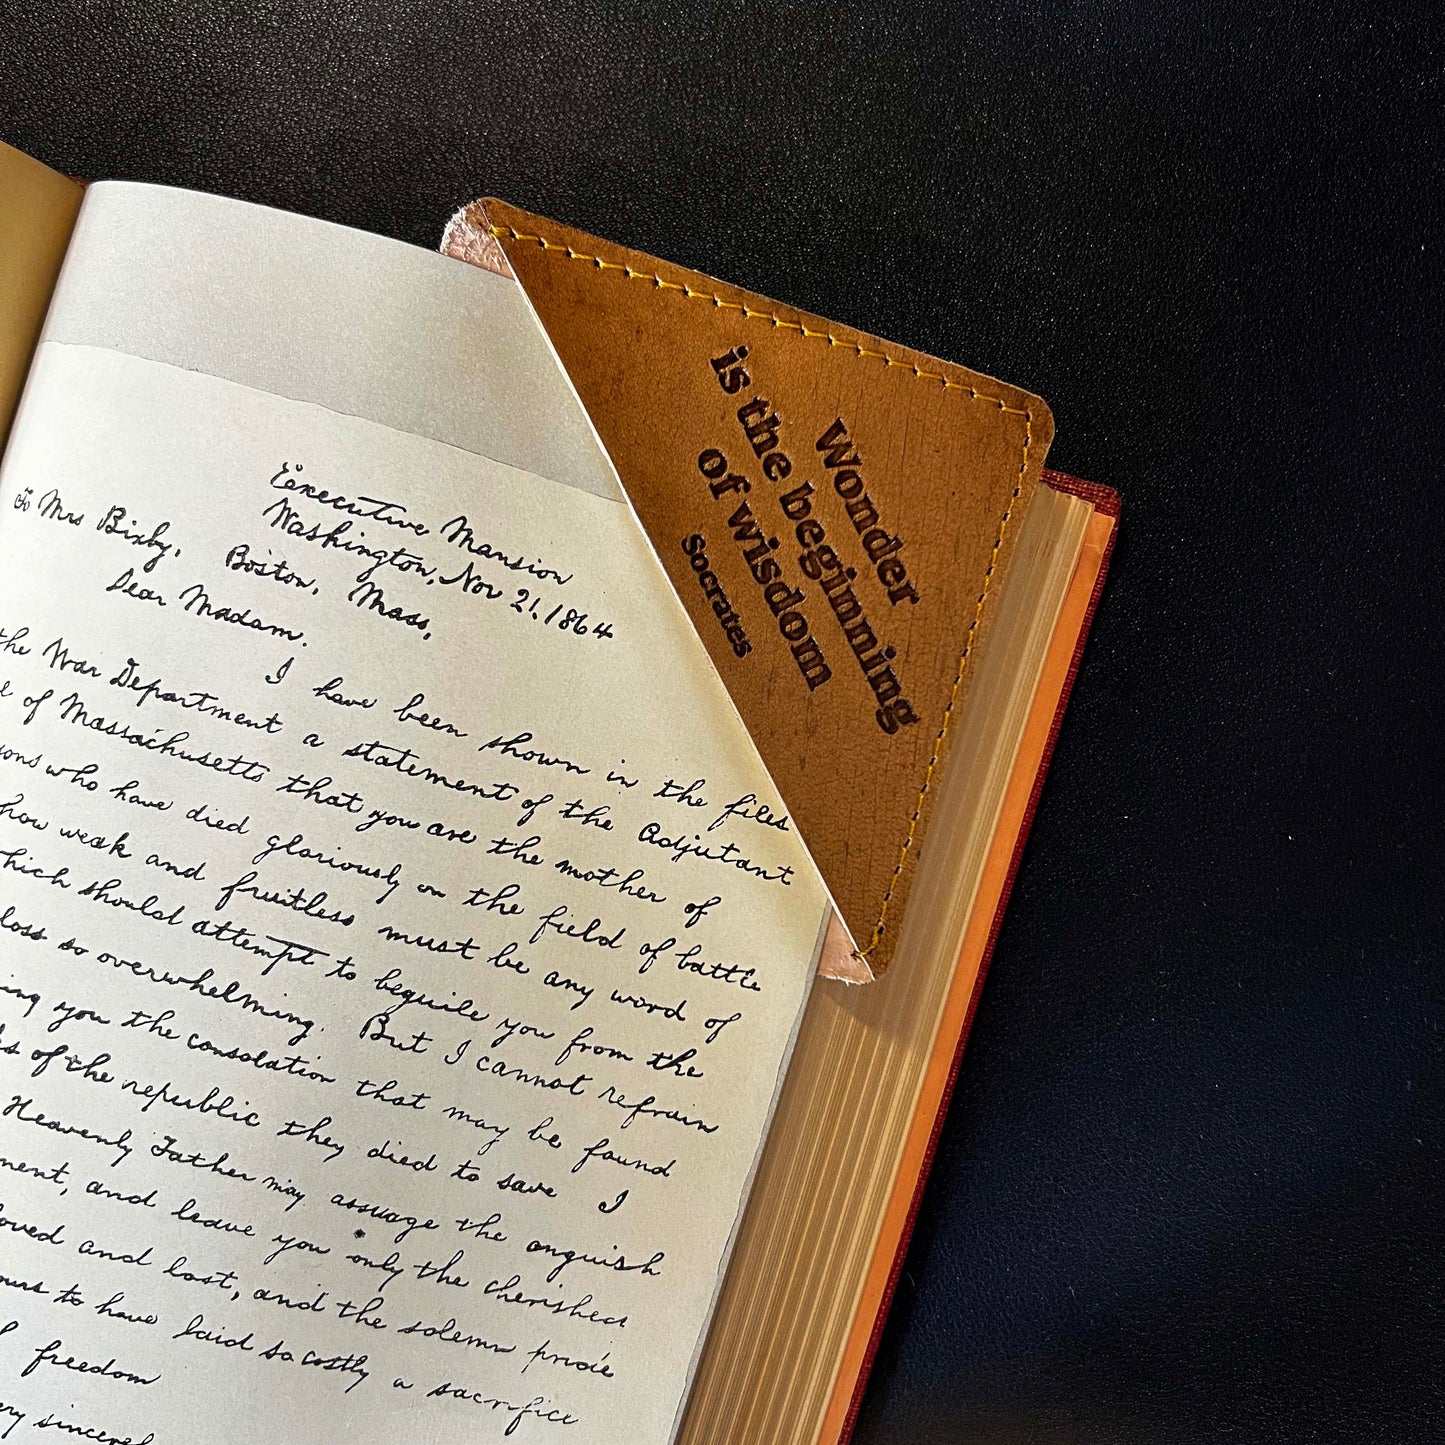 Executive Mansion
Washington, Nov 21, 1864
To Mrs Bixby,
Boston, Mass,
Dear Madam.
I have been shown in the files
the War Department a statement of the Adjutant
of Massachusetts that you are the mother of
who have died gloriously on the field of battle
how weak and fruitless must be any word of
which should attempt to beguile you from the
loss so overwhelming. But I cannot refrain
you the consolation that may be found
of the republic they died to save I
Heavenly Father may assuage the anguish
and leave you only the cherished
and lost, and the solemn pride
to have laid so costly a sacrifice
freedom
Wonder
is the beginning
of wisdom
Socrates